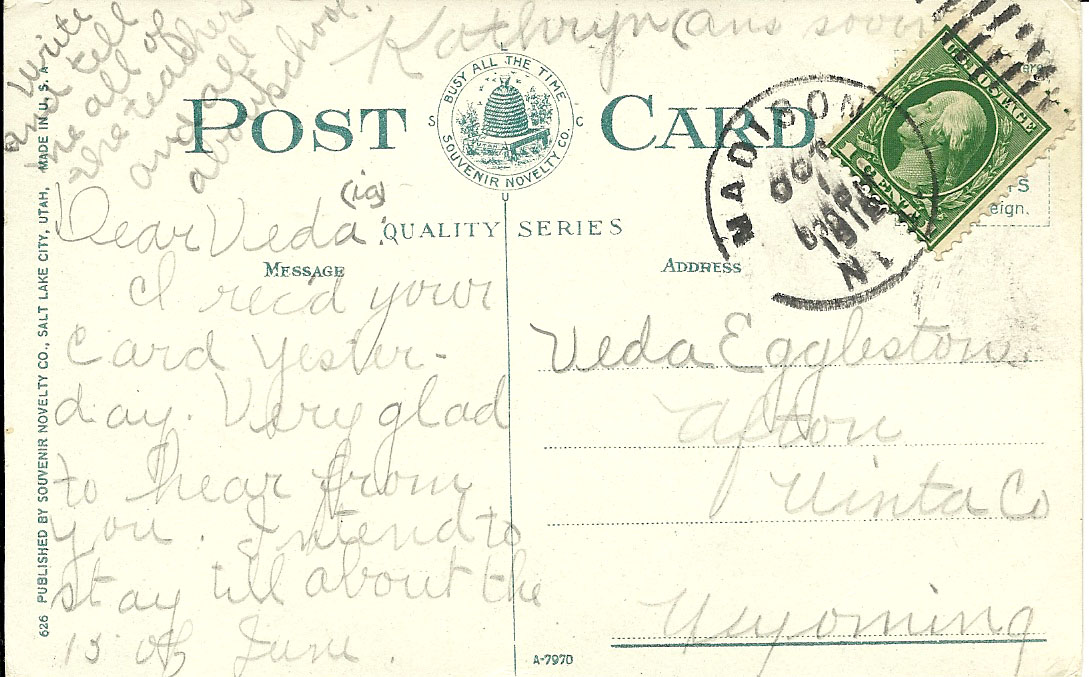 Write
and tell
me all of
the teachers
and all
about school.
Kathryn (ans soon
BUSY ALL THE TIME
L S C U
SOUVENIR NOVELTY CO.
POST CARD
QUALITY SERIES
MESSAGE
ADDRESS
Dear Veda:
I rec'd your
card yester-
day. Very glad
to hear from
you. Intend to
stay till about the
15 of June.
Veda Eggleston
Afton
Uinta Co
Wyoming
MADISON
OCT
1
PM
1912
U.S. POSTAGE
1 CENT 1
S
eign.
626 PUBLISHED BY SOUVENIR NOVELTY CO., SALT LAKE CITY, UTAH, MADE IN U.S.A
A-7970